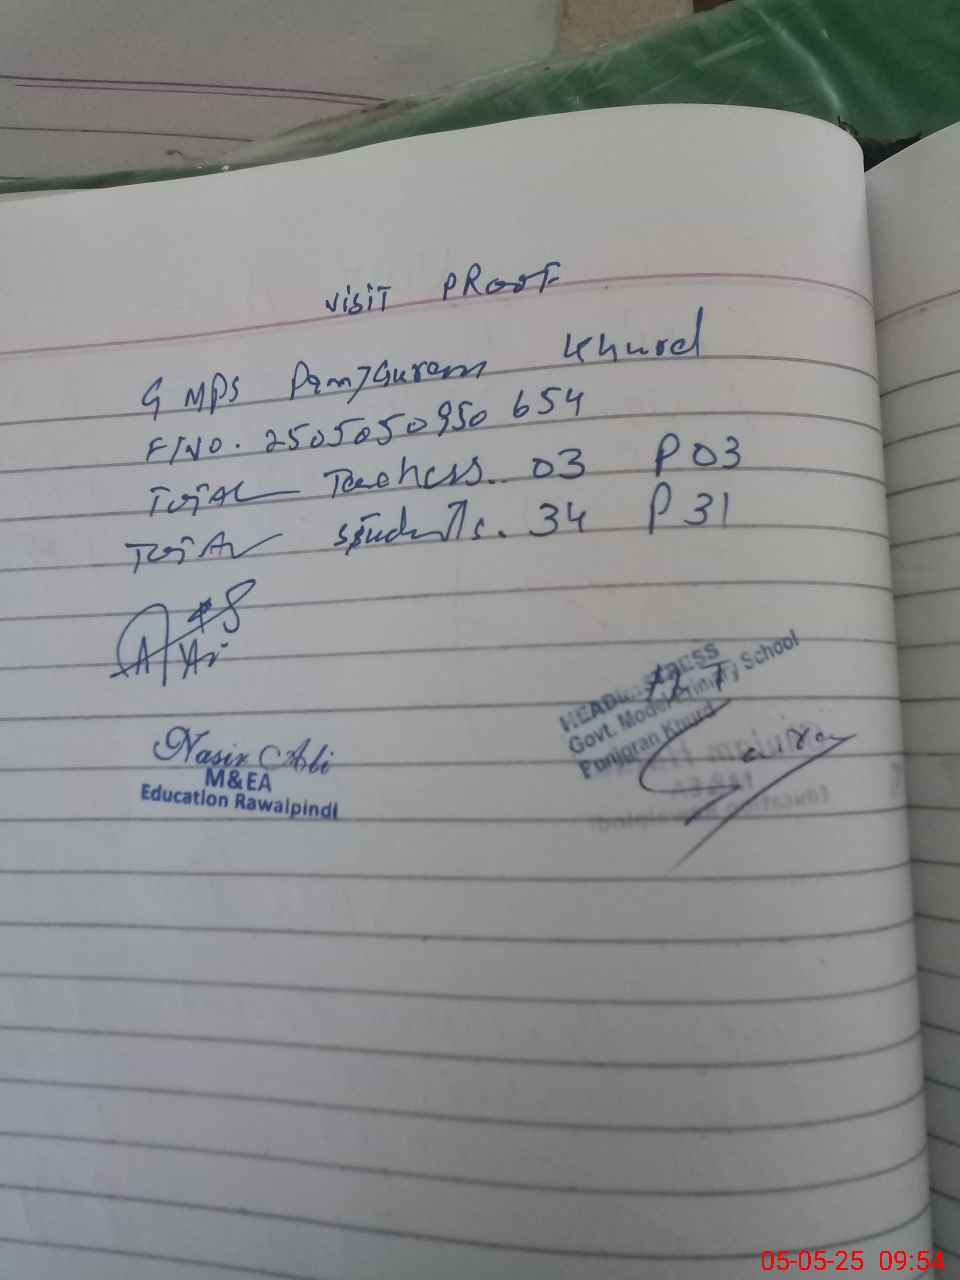 VISIT PROOF
G MPS Panjguran Khurd
F/NO. 2505050950654
TOTAL Teachers.. 03 P 03
TOTAL students. 34 P 31
Nasir Ali
M&EA
Education Rawalpindi
HEADMISTRESS
Govt. Model Primary School
Panjgran Khurd
05-05-25 09:54